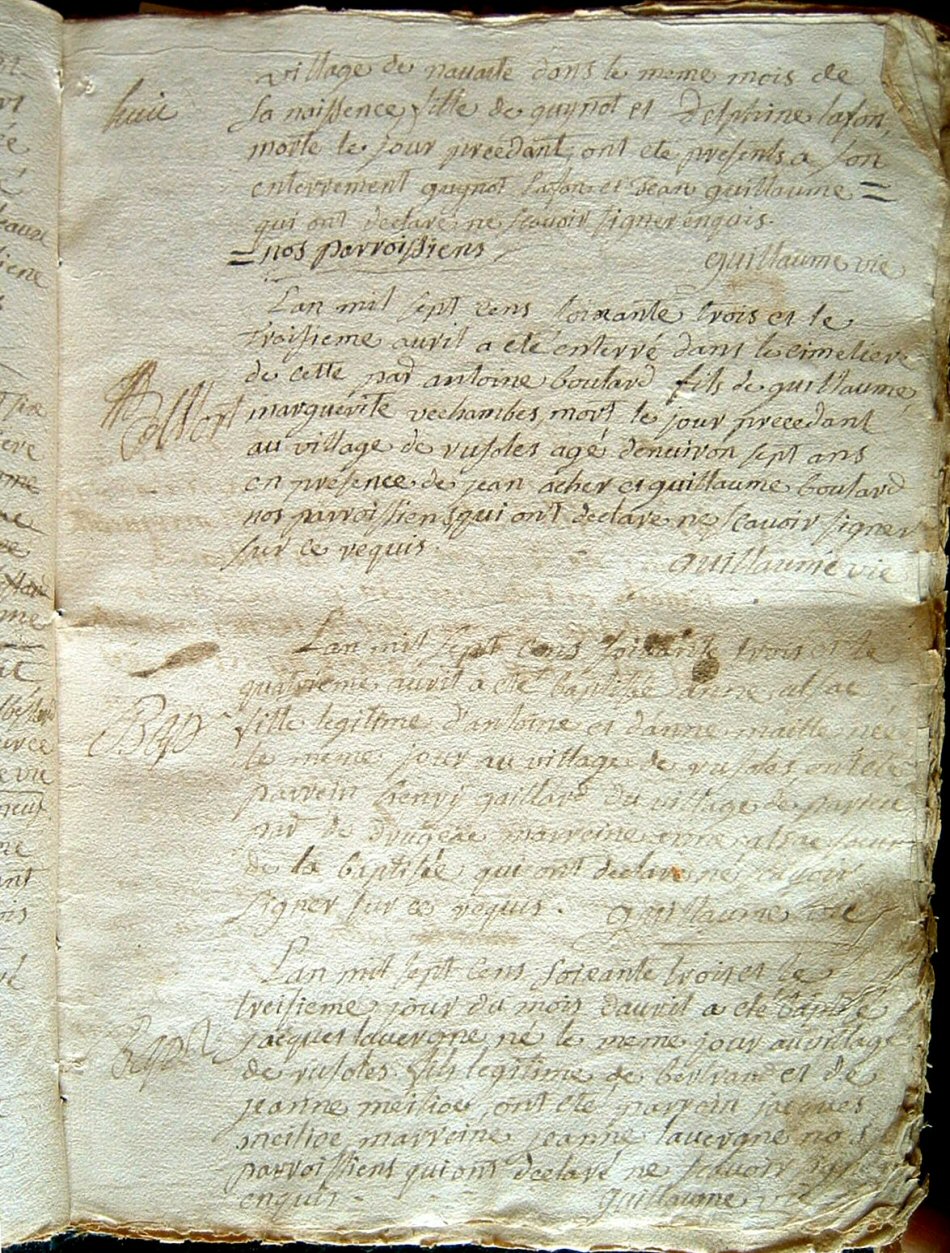 village de navaste dans le meme mois de
huit
sa naissence, fille de guynot et Delphine lafon,
morte le jour précédant, ont eté présents a son
enterrement guynot lafon et Jean guillaume =
qui ont declaré ne scavoir signer enquis.
= nos parroissiens
guillaume vie
Lan mil sept cens soixante trois et le
troisieme avril a eté enterré dans le cimetier
de cette par antoine boulard fils de guillaume
Mort
marguerite vechambes, mort le jour precedant
au village de rusoles agé denuiron sept ans
en presence de jean acher et guillaume boulard
nos parroissiens qui ont declaré ne scavoir signer
sur ce requis.
guillaume vie
Lan mil sept cens soixante trois et le
quatorieme avril a eté baptisée anne alsac
Bap
fille legitime d'antoine et d'anne maille née
le meme jour au village de rusoles, ont eté
parrein henri gaillard du village de
de drugeac marreine anne alsac soeur
de la baptisée qui ont declaré ne scavoir
signer sur ce requis. guillaume vie
Lan mil sept cens soixante trois et le
treisieme jour du mois davril a eté baptisé
jacques lauvergne né le meme jour au village
Bap
de rusoles fils legitime de bertrand et de
jeanne meilioe, ont eté parrein jacques
meilioe marreine jeanne lauvergne nos
parroissiens qui ont declaré ne scavoir signer
enquis.
guillaume vie